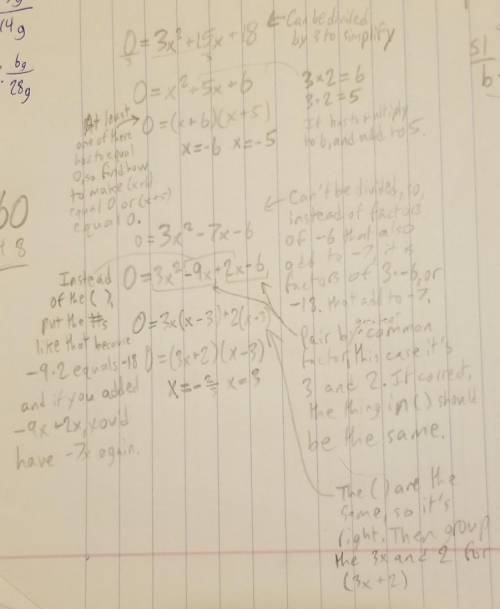 14g
6g
28g
0 = 3x² + 15x + 18
← Can be divided
by 3 to simplify
0 = x² + 5x + 6
3 × 2 = 6
3 + 2 = 5
It has to multiply
to 6, and add to 5.
At least
one of these
has to equal
0, so find how
to make (x+6)
equal 0 or (x+5)
equal 0.
0 = (x + 6)(x + 5)
x = -6 x = -5
51
b
60
+ 8
← Can't be divided, so,
instead of factors
of -6 that also
add to -7, it's
factors of 3·-6, or
-18. that add to -7.
0 = 3x² - 7x - 6
0 = 3x² - 9x + 2x - 6
0 = 3x(x - 3) + 2(x - 3)
0 = (3x + 2)(x - 3)
x = -2/3 x = 3
Instead
of the ( ),
put the #s
like that because
-9·2 equals -18
and if you added
-9x + 2x, you'd
have -7x again.
Pair by greatest common
factor, this case it's
3 and 2. If correct,
the thing in ( ) should
be the same.
The ( ) are the
same, so it's
right. Then group
the 3x and 2 for
(3x + 2)